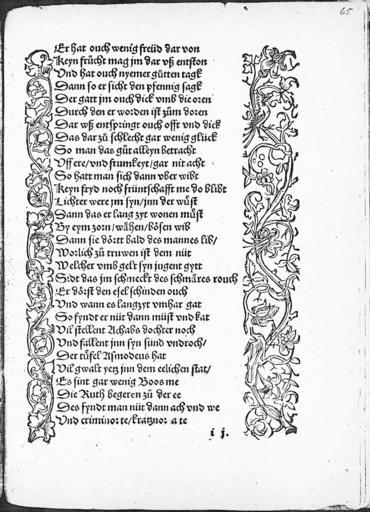 65
Er hat ouch wenig freüd dar von
Keyn frücht mag jm dar vß entston
Vnd hat ouch nyemer gütten tagk
Dann so er sicht den pfennig sagk
Der gatt jm ouch dick vmb die oren
Durch den er worden ist zům doren
Dar wß entspringt ouch offt vnd dick
Das dar zů schlecht gar wenig glück
So man das gůt alleyn betracht
Vff ere/ vnd frumkeyt/ gar nit acht
So hatt man sich dann vber wibt
Keyn fryd noch früntschafft me do blibt
Lichter were jm syn/ jnn der wůst
Dann das er lang zyt wonen můst
By eym zorn/ wåhen/ bösen wib
Dann sie dörrt bald des mannes lib/
Worlich zů truwen ist dem nüt
Welcher vmb gelt syn jugent gytt
Sidt das jm schmeckt des schmåres rouch
Er dörst den esel schinden ouch
Vnd wann es langzyt vmhar gat
So fyndt er nüt dann müst vnd kat
Vil stellent Achabs dochter noch
Vnd fallent jnn syn sünd vnd roch/
Der tüfel Asmodeus hat
Vil gwalt yetz jnn dem eelichen stat/
Es sint gar wenig Boos me
Die Ruth begeren zů der ee
Des fyndt man nüt dann ach vnd we
Vnd criminor te/ kratznor a te
i j.